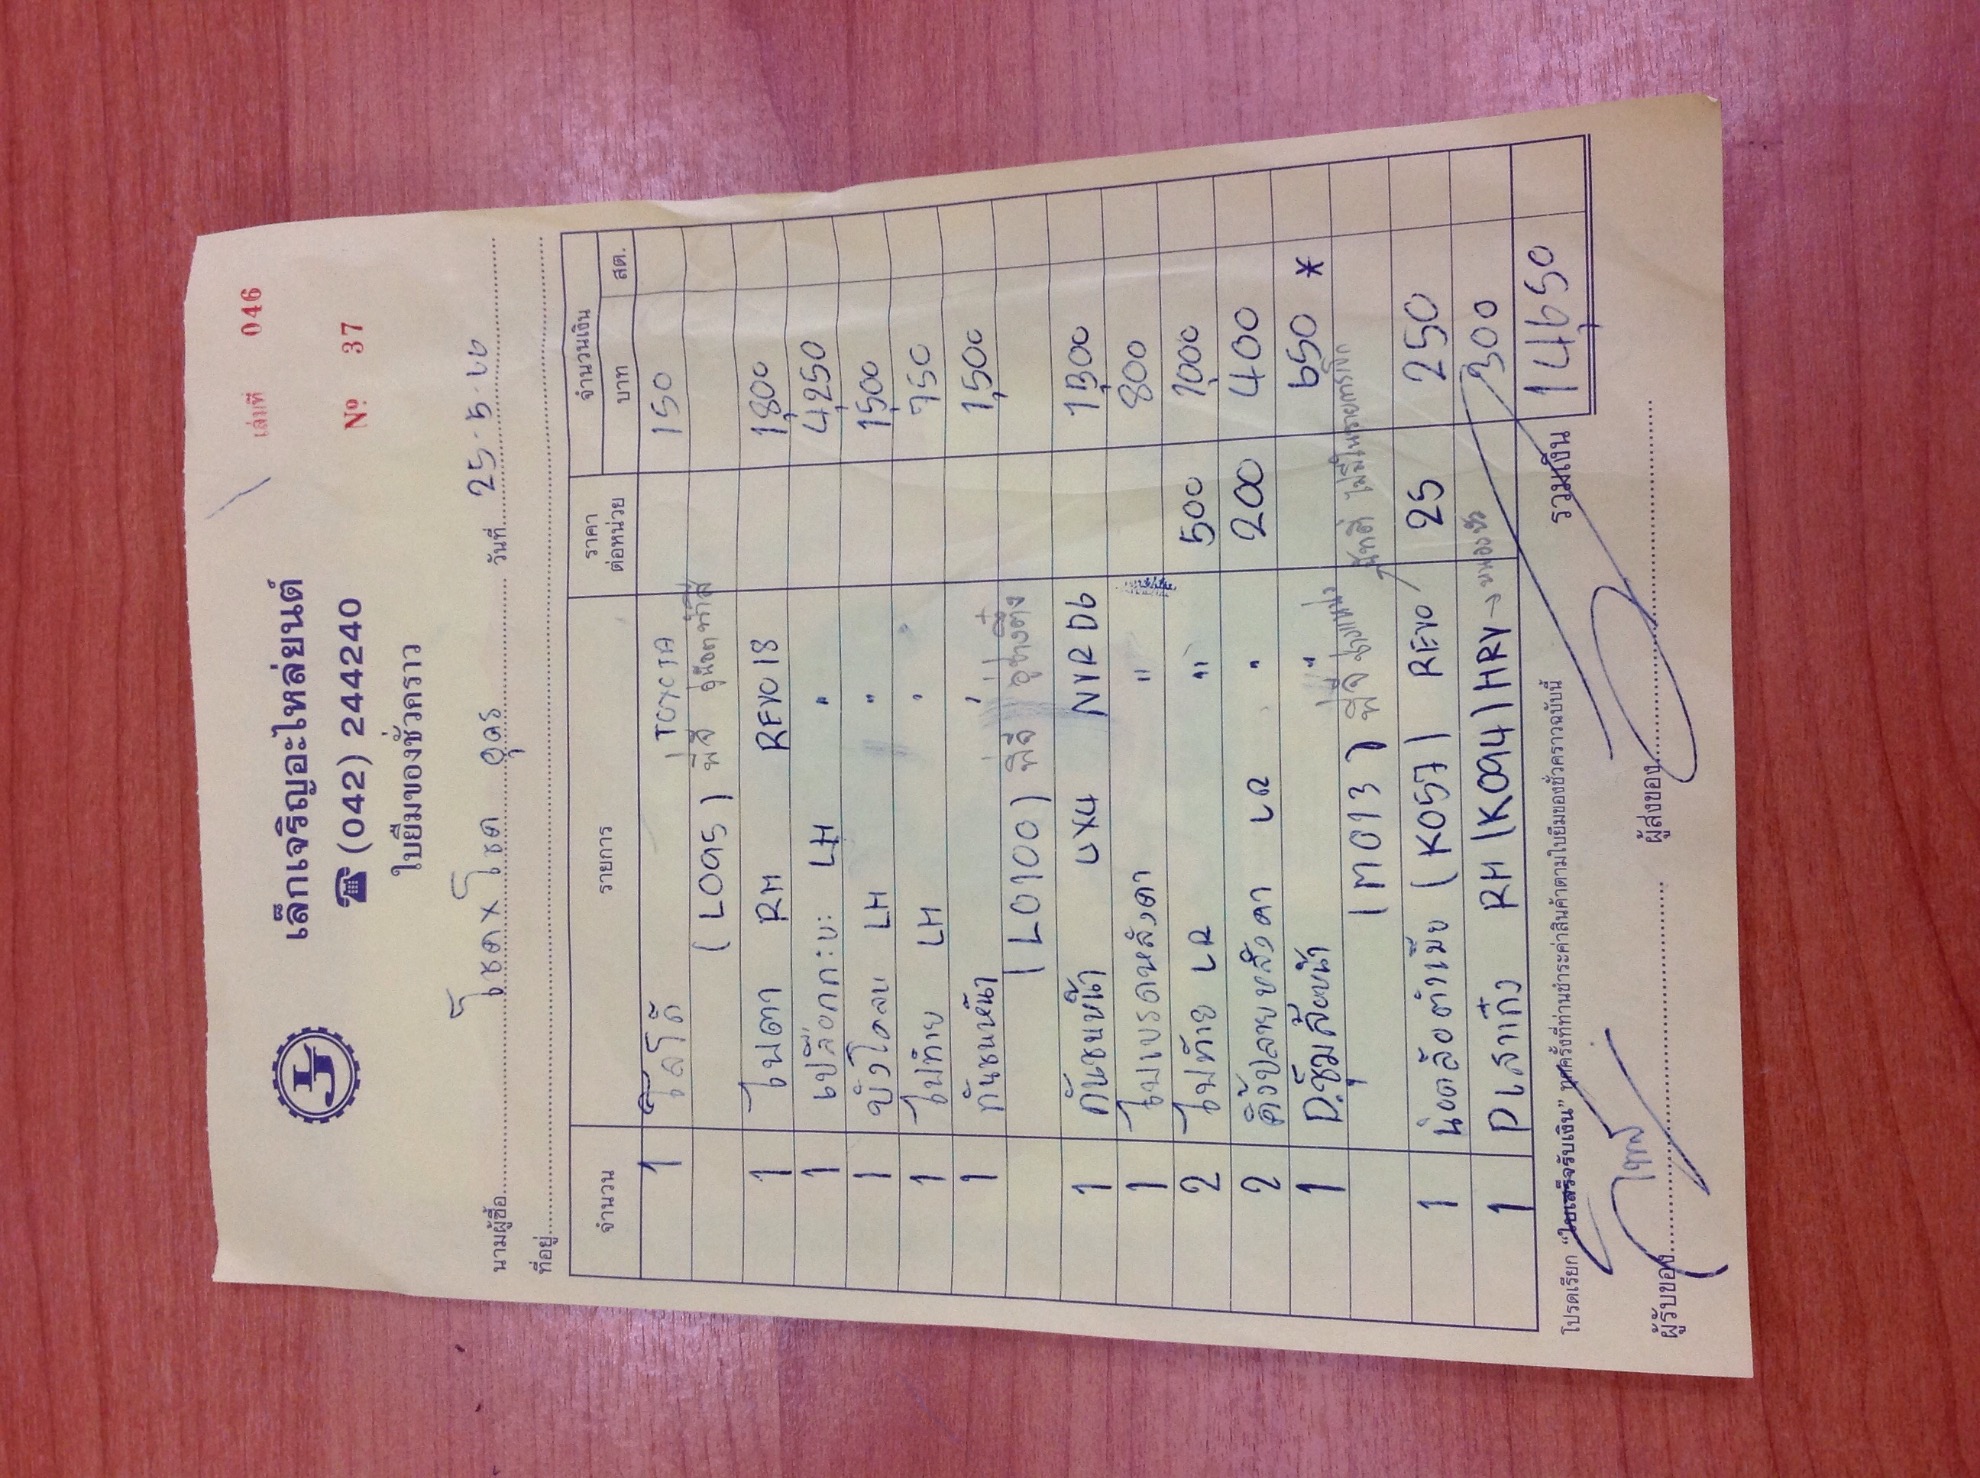 เล่มที่ 046
เล็กเจริญอะไหล่ยนต์
☎ (042) 244240
Nº 37
ใบยืมของชั่วคราว
นามผู้ซื้อ โชค x โชค อุดร วันที่ 25-5-66
ที่อยู่
จำนวน รายการ ราคาต่อหน่วย จำนวนเงิน บาท สต.
1 โลโก้ TOYOTA 150
(L095) พี่จี
1 ไฟตา RH REVO 18 1,800
1 เปลือกกะบะ LH " 4,250
1 บังโคลน LH " 1,500
1 ไฟท้าย LH " 750
1 กันชนหน้า " 1,500
(L0100) พี่จี อู่ช่างติ่ง
1 กันชนหน้า 4X4 NVR D6 1,300
1 ไฟเบรคหลังคา " 800
2 ไฟท้าย LR " 500 1,000
2 คิ้วปลายหลังคา LR " 200 400
1 P.ซุ้มล้อหน้า " 650 *
(M013) พี่จี
1 น๊อตล้อตัวเมีย (K057) REVO 25 250
1 Pเสาเก๋ง RH (K094) HRV 300
รวมเงิน 14,650
โปรดเรียก “ใบเสร็จรับเงิน” ทุกครั้งที่ท่านชำระค่าสินค้าตามใบยืมของชั่วคราวฉบับนี้
ผู้รับของ ผู้ส่งของ